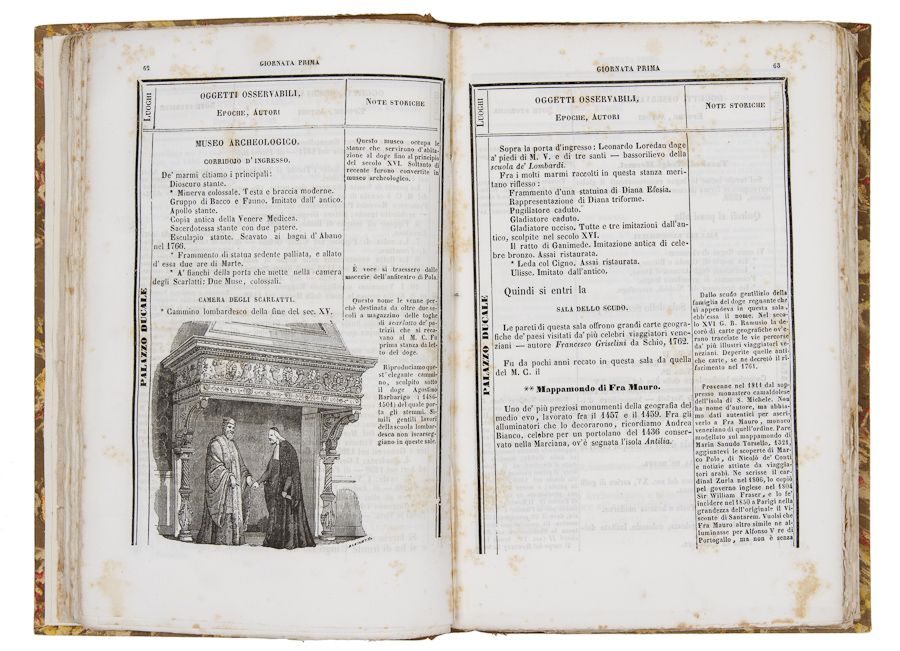 62
GIORNATA PRIMA
LUOGHI
OGGETTI OSSERVABILI,
EPOCHE, AUTORI
NOTE STORICHE
PALAZZO DUCALE
MUSEO ARCHEOLOGICO.
CORRIDOJO D'INGRESSO.
De' marmi citiamo i principali:
Dioscuro stante.
* Minerva colossale. Testa e braccia moderne.
Gruppo di Bacco e Fauno. Imitato dall' antico.
Apollo stante.
Copia antica della Venere Medicea.
Sacerdotessa stante con due patere.
Esculapio stante. Scavato ai bagni d'Abano
nel 1766.
* Frammento di statua sedente palliata, e allato
d' essa due are di Marte.
* A' fianchi della porta che mette nella camera
degli Scarlatti: Due Muse, colossali.
CAMERA DEGLI SCARLATTI.
* Cammino lombardesco della fine del sec. XV.
Questo museo occupa le
stanze che servirono d'abita-
zione al doge fino al principio
del secolo XVI. Soltanto di
recente furono convertite in
museo archeologico.
È voce si traessero dalle
macerie dell'anfiteatro di Pola.
Questo nome le venne per-
chè destinata da oltre due se-
coli a magazzino delle toghe
di scarlatto de' pa-
trizii che si reca-
vano al M. C. Fu
prima stanza da let-
to del doge.
Riproduciamo que-
st' elegante cammi-
no, scolpito sotto
il doge Agostino
Barbarigo (1486-
1501) del quale por-
ta gli stemmi. Si-
mili gentili lavori
della scuola lombar-
desca non iscarseg-
giano in queste sale.
GIORNATA PRIMA
63
LUOGHI
OGGETTI OSSERVABILI,
EPOCHE, AUTORI
NOTE STORICHE
PALAZZO DUCALE
Sopra la porta d'ingresso: Leonardo Loredan doge
a' piedi di M. V. e di tre santi — bassorilievo della
scuola de' Lombardi.
Fra i molti marmi raccolti in questa stanza meri-
tano riflesso:
Frammento d'una statuina di Diana Efesia.
Rappresentazione di Diana triforme.
Pugillatore caduto.
Gladiatore caduto.
Gladiatore ucciso. Tutte e tre imitazioni dall'an-
tico, scolpite nel secolo XVI.
Il ratto di Ganimede. Imitazione antica di cele-
bre bronzo. Assai ristaurata.
* Leda col Cigno. Assai ristaurata.
Ulisse. Imitato dall'antico.
Quindi si entri la
SALA DELLO SCUDO.
Le pareti di questa sala offrono grandi carte geogra-
fiche de' paesi visitati da' più celebri viaggiatori vene-
ziani — autore Francesco Griselini da Schio, 1762.
Fu da pochi anni recato in questa sala da quella
del M. C. il
** Mappamondo di Fra Mauro.
Uno de' più preziosi monumenti della geografia del
medio evo, lavorato fra il 1457 e il 1459. Fra gli
alluminatori che lo decorarono, ricordiamo Andrea
Bianco, celebre per un portolano del 1436 conser-
vato nella Marciana, ov'è segnata l'isola Antilia.
Dallo scudo gentilizio della
famiglia del doge regnante che
si appendeva in questa sala,
ebb'essa il nome. Nel seco-
lo XVI G. B. Ramusio la de-
corò di carte geografiche ov'e-
rano tracciate le vie percorse
da' più illustri viaggiatori ve-
neziani. Deperite quelle anti-
che carte, se ne decretò il ri-
facimento nel 1761.
Provenne nel 1811 dal sop-
presso monastero camaldolese
dell'isola di S. Michele. Non
ha nome d'autore, ma abbia-
mo dati autentici per ascri-
verlo a Fra Mauro, monaco
veneziano di quell'ordine. Pare
modellato sul mappamondo di
Marin Sanudo Torsello, 1321,
aggiuntevi le scoperte di Mar-
co Polo, di Nicolò de' Conti
e notizie attinte da viaggia-
tori arabi. Ne scrisse il car-
dinal Zurla nel 1806, lo copiò
pel governo inglese nel 1804
Sir William Fraser, e lo fe'
incidere nel 1850 a Parigi nella
grandezza dell'originale il Vi-
sconte di Santarem. Vuolsi che
Fra Mauro altro simile ne al-
luminasse per Alfonso V re di
Portogallo, ma non è senza